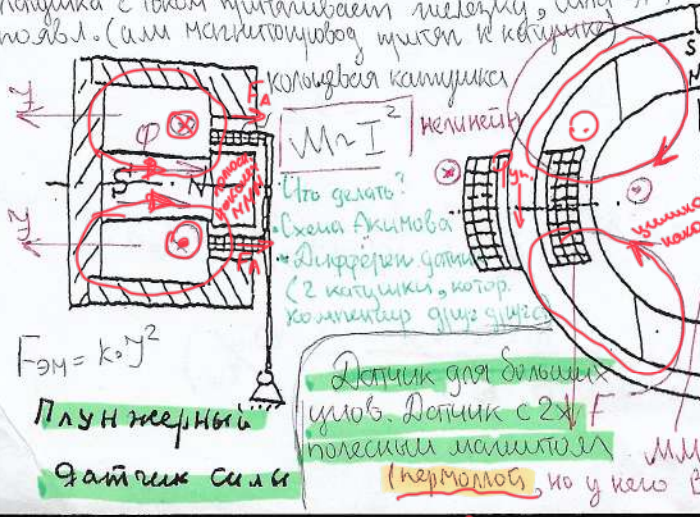 катушка с током притягивает железку, сила
появл. (или магнитопровод притян к катушке)
кольцевая катушка
J
Fд
φ
M~I²
нелинейн
S N
Что делать?
• Схема Акимова
• Дифферен датчик
(2 катушки, котор.
компенсир друг друга)
J
Fэм = k·J²
Плунжерный
датчик силы
Датчик для больших
углов. Датчик с 2х
полюсным магнитом
(пермаллой, но у него
F
S
N